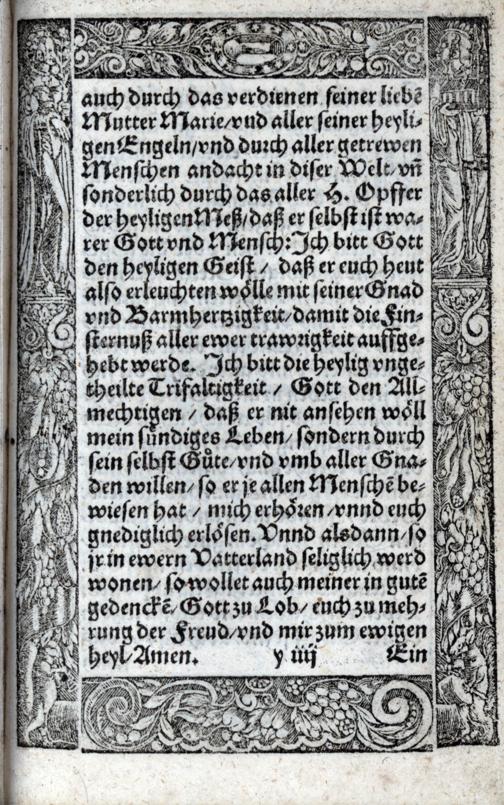 auch durch das verdienen seiner liebē
Mutter Marie/vnd aller seiner heyli-
gen Engeln/vnd durch aller getrewen
Menschen andacht in diser Welt/ vn̄
sonderlich durch das aller H. Opffer
der heyligen Meß/daß er selbst ist wa-
rer Gott vnd Mensch: Jch bitt Gott
den heyligen Geist / daß er euch heut
also erleuchten wölle mit seiner Gnad
vnd Barmhertzigkeit/damit die Fin-
sternuß aller ewer trawrigkeit auffge-
hebt werde. Jch bitt die heylig vnge-
theilte Trifaltigkeit / Gott den All-
mechtigen / daß er nit ansehen wöll
mein sündiges Leben/ sondern durch
sein selbst Gůte/vnd vmb aller Gna-
den willen/ so er je allen Menschē be-
wiesen hat / mich erhören /vnnd euch
gnediglich erlösen. Vnnd alsdann/so
jr in ewern Vatterland seliglich werd
wonen/ so wollet auch meiner in gutē
gedenckē/ Gott zu Lob/ euch zu meh-
rung der Freud/vnd mir zum ewigen
heyl/Amen. y iiij Ein